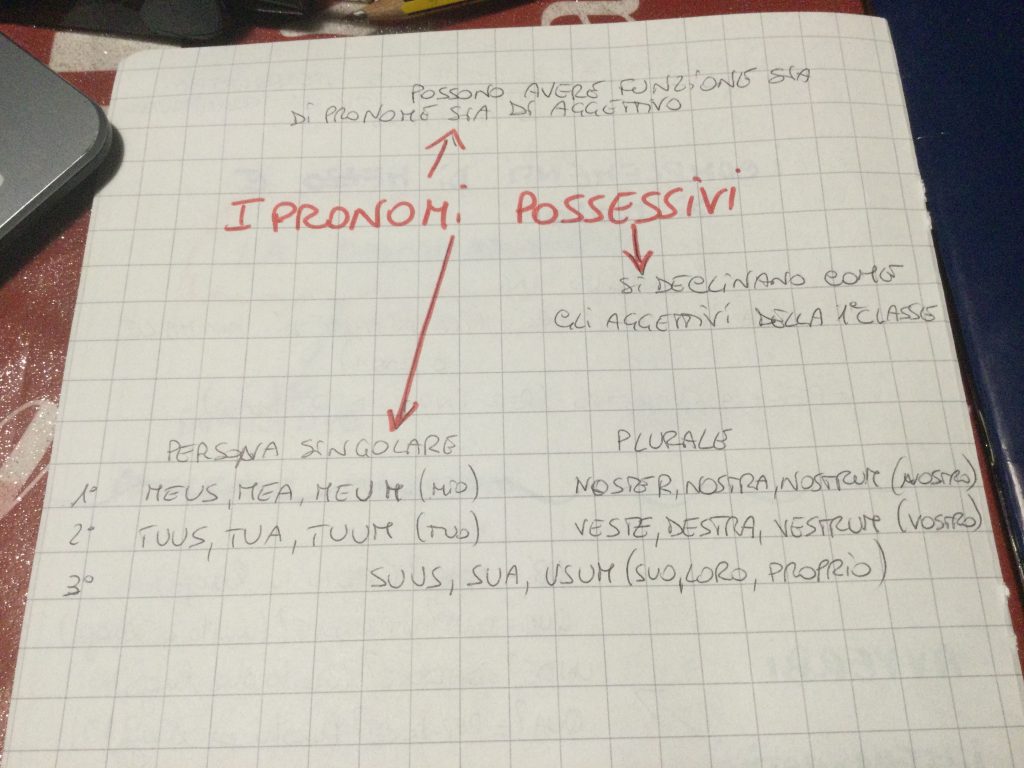 POSSONO AVERE FUNZIONE SIA
DI PRONOME SIA DI AGGETTIVO
I PRONOMI POSSESSIVI
SI DECLINANO COME
GLI AGGETTIVI DELLA 1ª CLASSE
PERSONA SINGOLARE PLURALE
1ª MEUS, MEA, MEUM (MIO) NOSTER, NOSTRA, NOSTRUM (NOSTRO)
2ª TUUS, TUA, TUUM (TUO) VESTE, DESTRA, VESTRUM (VOSTRO)
3ª SUUS, SUA, USUM (SUO, LORO, PROPRIO)